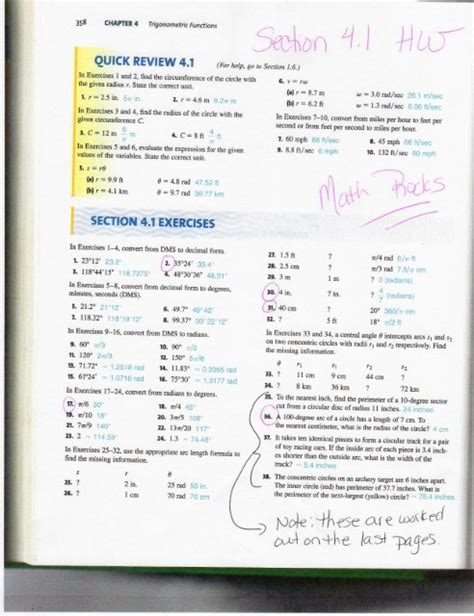 358 CHAPTER 4 Trigonometric Functions
Section 4.1 HW
QUICK REVIEW 4.1 (For help, go to Section 1.6.)
In Exercises 1 and 2, find the circumference of the circle with
the given radius r. State the correct unit.
1. r = 2.5 in. 5π in. 2. r = 4.6 m 9.2π m
In Exercises 3 and 4, find the radius of the circle with the
given circumference C.
3. C = 12 m 6/π m 4. C = 8 ft 4/π ft
In Exercises 5 and 6, evaluate the expression for the given
values of the variables. State the correct unit.
5. s = rθ
(a) r = 9.9 ft θ = 4.8 rad 47.52 ft
(b) r = 4.1 km θ = 9.7 rad 39.77 km
6. v = rω
(a) r = 8.7 m ω = 3.0 rad/sec 26.1 m/sec
(b) r = 6.2 ft ω = 1.3 rad/sec 8.06 ft/sec
In Exercises 7–10, convert from miles per hour to feet per
second or from feet per second to miles per hour.
7. 60 mph 88 ft/sec 8. 45 mph 66 ft/sec
9. 8.8 ft/sec 6 mph 10. 132 ft/sec 90 mph
Math Rocks
SECTION 4.1 EXERCISES
In Exercises 1–4, convert from DMS to decimal form.
1. 23°12' 23.2° 2. 35°24' 35.4°
3. 118°44'15" 118.7375° 4. 48°30'36" 48.51°
In Exercises 5–8, convert from decimal form to degrees,
minutes, seconds (DMS).
5. 21.2° 21°12' 6. 49.7° 49°42'
7. 118.32° 118°19'12" 8. 99.37° 99°22'12"
In Exercises 9–16, convert from DMS to radians.
9. 60° π/3 10. 90° π/2
11. 120° 2π/3 12. 150° 5π/6
13. 71.72° ≈ 1.2518 rad 14. 11.83° ≈ 0.2065 rad
15. 61°24' ≈ 1.0716 rad 16. 75°30' ≈ 1.3177 rad
In Exercises 17–24, convert from radians to degrees.
17. π/6 30° 18. π/4 45°
19. π/10 18° 20. 3π/5 108°
21. 7π/9 140° 22. 13π/20 117°
23. 2 ≈ 114.59° 24. 1.3 ≈ 74.48°
In Exercises 25–32, use the appropriate arc length formula to
find the missing information.
s r θ
25. ? 2 in. 25 rad 50 in.
26. ? 1 cm 70 rad 70 cm
27. 1.5 ft ? π/4 rad 6/π ft
28. 2.5 cm ? π/3 rad 7.5/π cm
29. 3 m 1 m ? 3 (radians)
30. 4 in. 7 in. ? 4/7 (radians)
31. 40 cm ? 20° 360/π cm
32. ? 5 ft 18° π/2 ft
In Exercises 33 and 34, a central angle θ intercepts arcs s1 and s2
on two concentric circles with radii r1 and r2, respectively. Find
the missing information.
θ r1 s1 r2 s2
33. ? 11 cm 9 cm 44 cm ?
34. ? 8 km 36 km ? 72 km
35. To the nearest inch, find the perimeter of a 10-degree sector
cut from a circular disc of radius 11 inches. 24 inches
36. A 100-degree arc of a circle has a length of 7 cm. To
the nearest centimeter, what is the radius of the circle? 4 cm
37. It takes ten identical pieces to form a circular track for a pair
of toy racing cars. If the inside arc of each piece is 3.4 inch-
es shorter than the outside arc, what is the width of the
track? ≈ 5.4 inches
38. The concentric circles on an archery target are 6 inches apart.
The inner circle (red) has perimeter of 37.7 inches. What is
the perimeter of the next-largest (yellow) circle? ≈ 75.4 inches
Note: these are worked
out on the last pages.